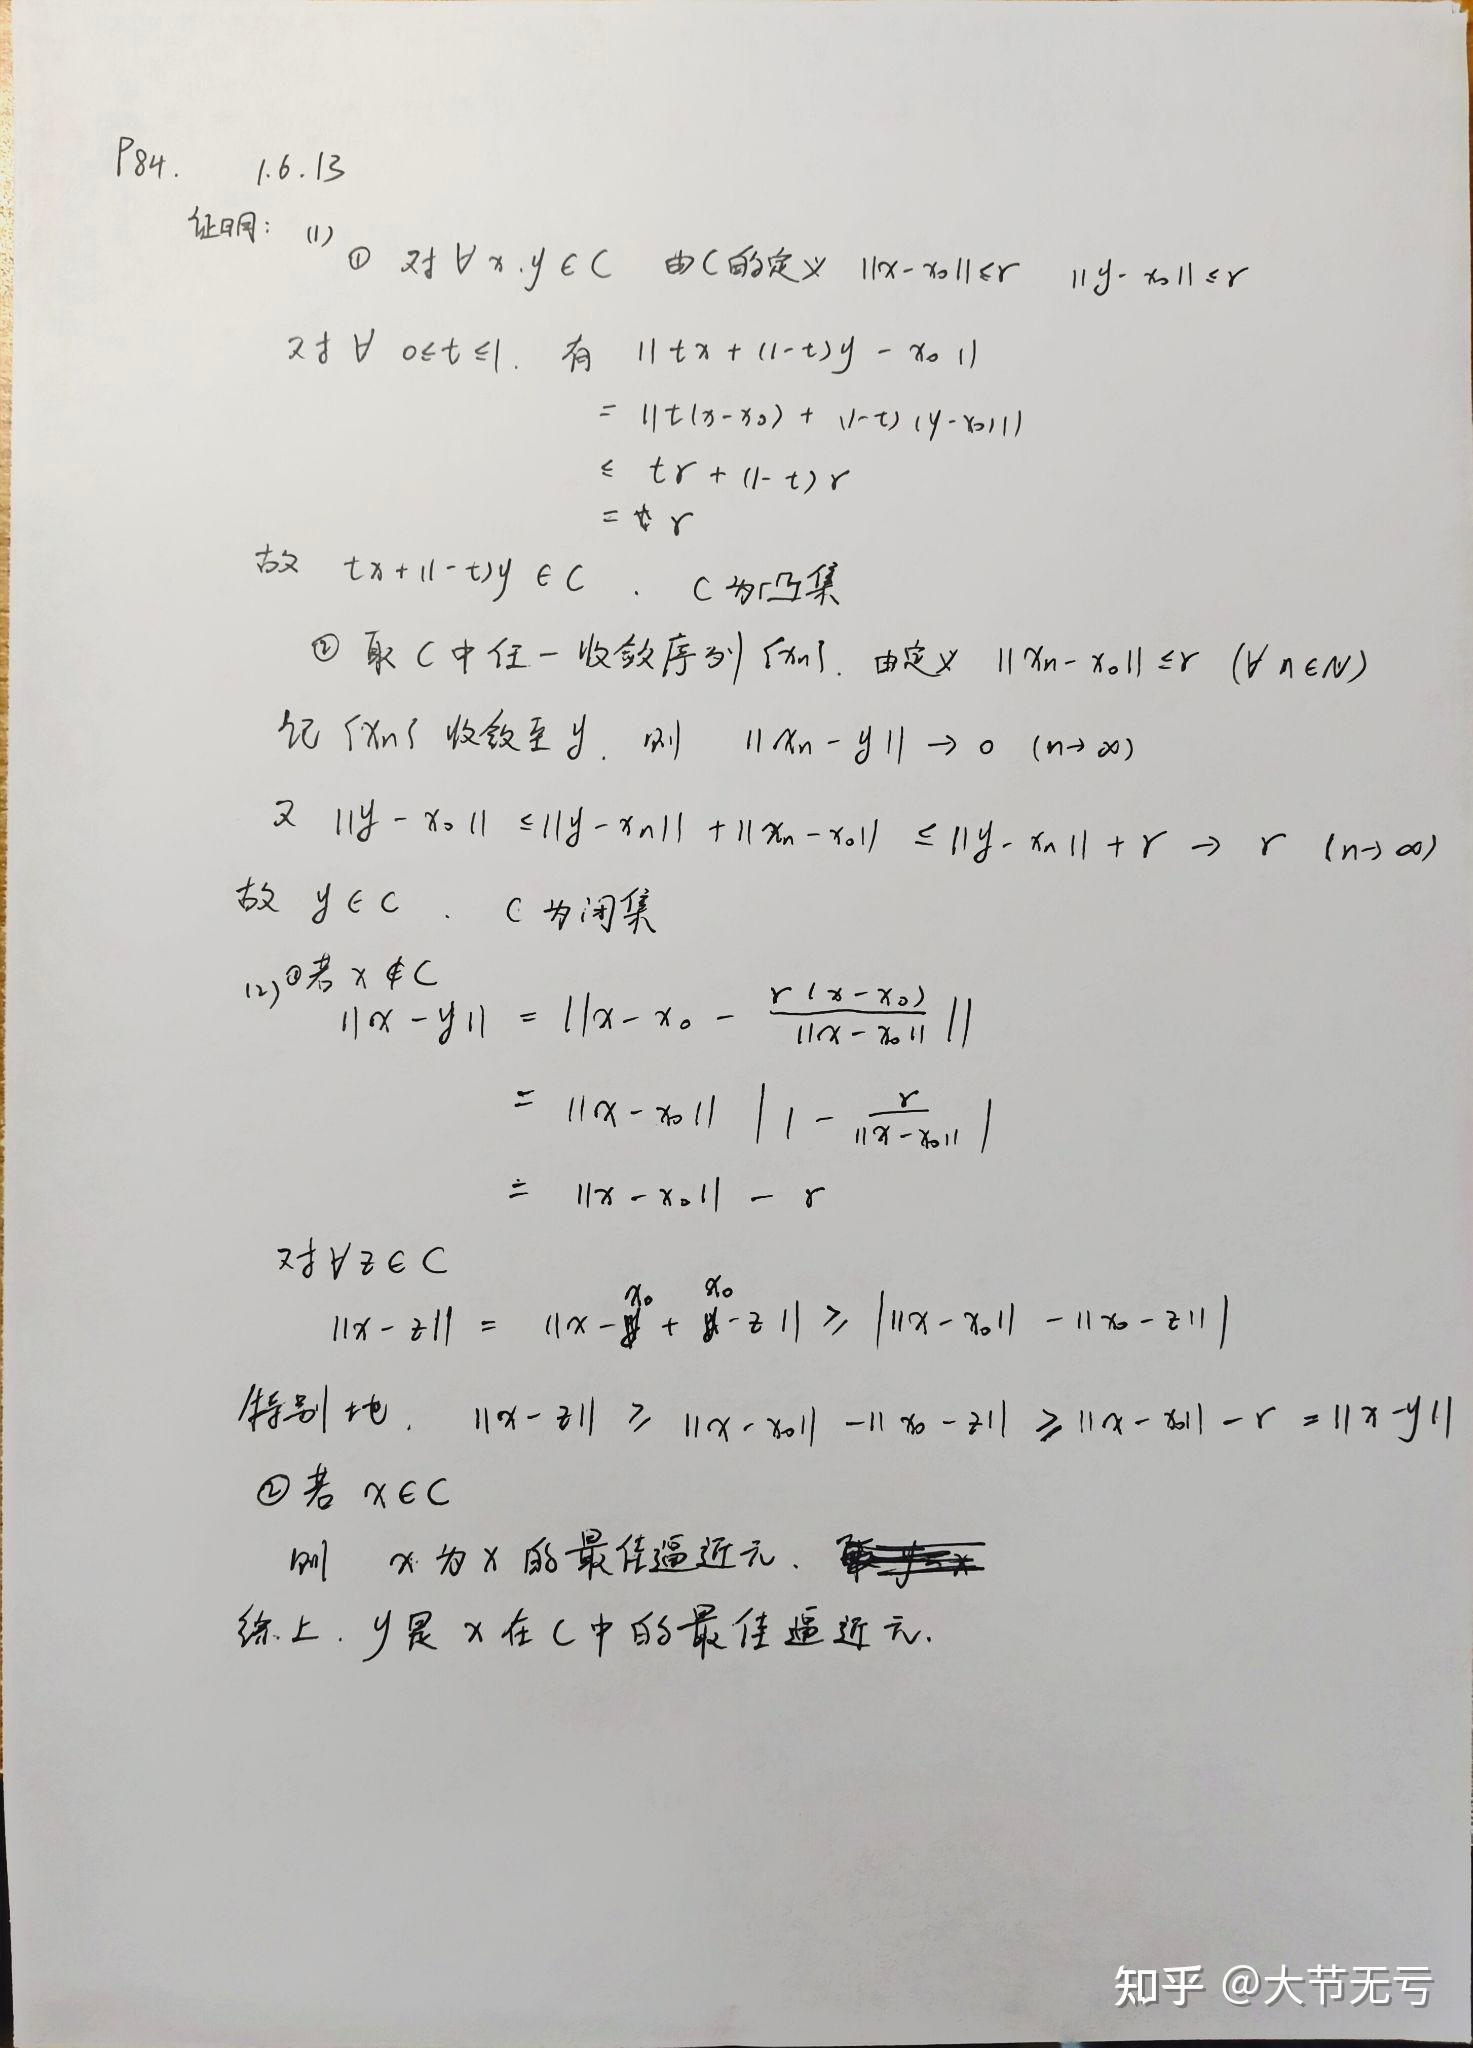 P84. 1.6.13
证明: (1)
① 对 ∀ x.y ∈ C 由C的定义 ||x-x₀||≤r ||y-x₀||≤r
对 ∀ 0≤t≤1. 有 ||tx+(1-t)y-x₀||
= ||t(x-x₀)+(1-t)(y-x₀)||
≤ tr+(1-t)r
= r
故 tx+(1-t)y ∈ C . C为凸集
② 取C中任一收敛序列{xn}. 由定义 ||xn-x₀||≤r (∀ n∈N)
记{xn}收敛至y. 则 ||xn-y|| → 0 (n→∞)
又 ||y-x₀|| ≤||y-xn||+||xn-x₀|| ≤ ||y-xn||+r → r (n→∞)
故 y∈C . C为闭集
(2) ①若 x∉C
||x-y|| = ||x-x₀ - r(x-x₀)/||x-x₀|| ||
= ||x-x₀|| |1 - r/||x-x₀|| |
= ||x-x₀|| - r
对∀z∈C
||x-z|| = ||x-x₀+x₀-z|| ≥ | ||x-x₀|| - ||x₀-z|| |
特别地. ||x-z|| ≥ ||x-x₀|| -||x₀-z|| ≥ ||x-x₀||-r = ||x-y||
②若 x∈C
则 x为x的最佳逼近元.
综上. y是x在C中的最佳逼近元.
知乎 @大节无亏